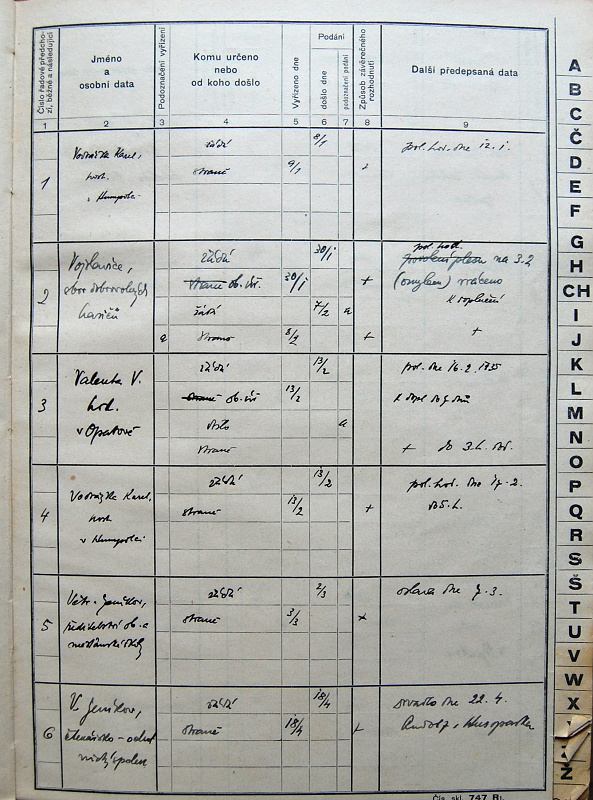 Číslo řadové předcho-
zí, běžné a následující
Jméno
a
osobní data
Podoznačení vyřízení
Komu určeno
nebo
od koho došlo
Vyřízeno dne
Podání
došlo dne
podoznačení podání
Způsob závěrečného
rozhodnutí
Další předepsaná data
1 2 3 4 5 6 7 8 9
1
Vodrážka Karel,
host.
v Humpolci
žádá 8/1
straně 9/1
pol. hod. dne 12.1.
2
Vojslavice,
sbor dobrovolných
hasičů
žádá 30/1
straně ob. úř. 30/1 +
žádá 7/2 a
a straně 8/2 +
pol. hod.
povolení plesu na 3.2
(omylem) vráceno
k doplnění
+
3
Valenta V.
hod.
v Opatově
žádá 13/2
straně ob. úř 13/2
došlo a
straně
pol. dne 16.2. 1935
+ do 3 h.
4
Vodrážka Karel,
host.
v Humpolci
žádá 13/2
straně 13/2 +
pol. hod. dne 17.2.
do 5 h.
5
Větr. Jeníkov,
ředitelství ob. a
měšťanské školy
žádá 2/3
straně 3/3 +
oslava dne 7.3.
6
V. Jeníkov,
čtenářsko-ochot
nický spolek
žádá 18/4
straně 18/4 +
divadlo dne 22.4.
A
B
C
Č
D
E
F
G
H
CH
I
J
K
L
M
N
O
P
Q
R
S
Š
T
U
V
W
X
Ž
Čís. skl. 747 Ri.